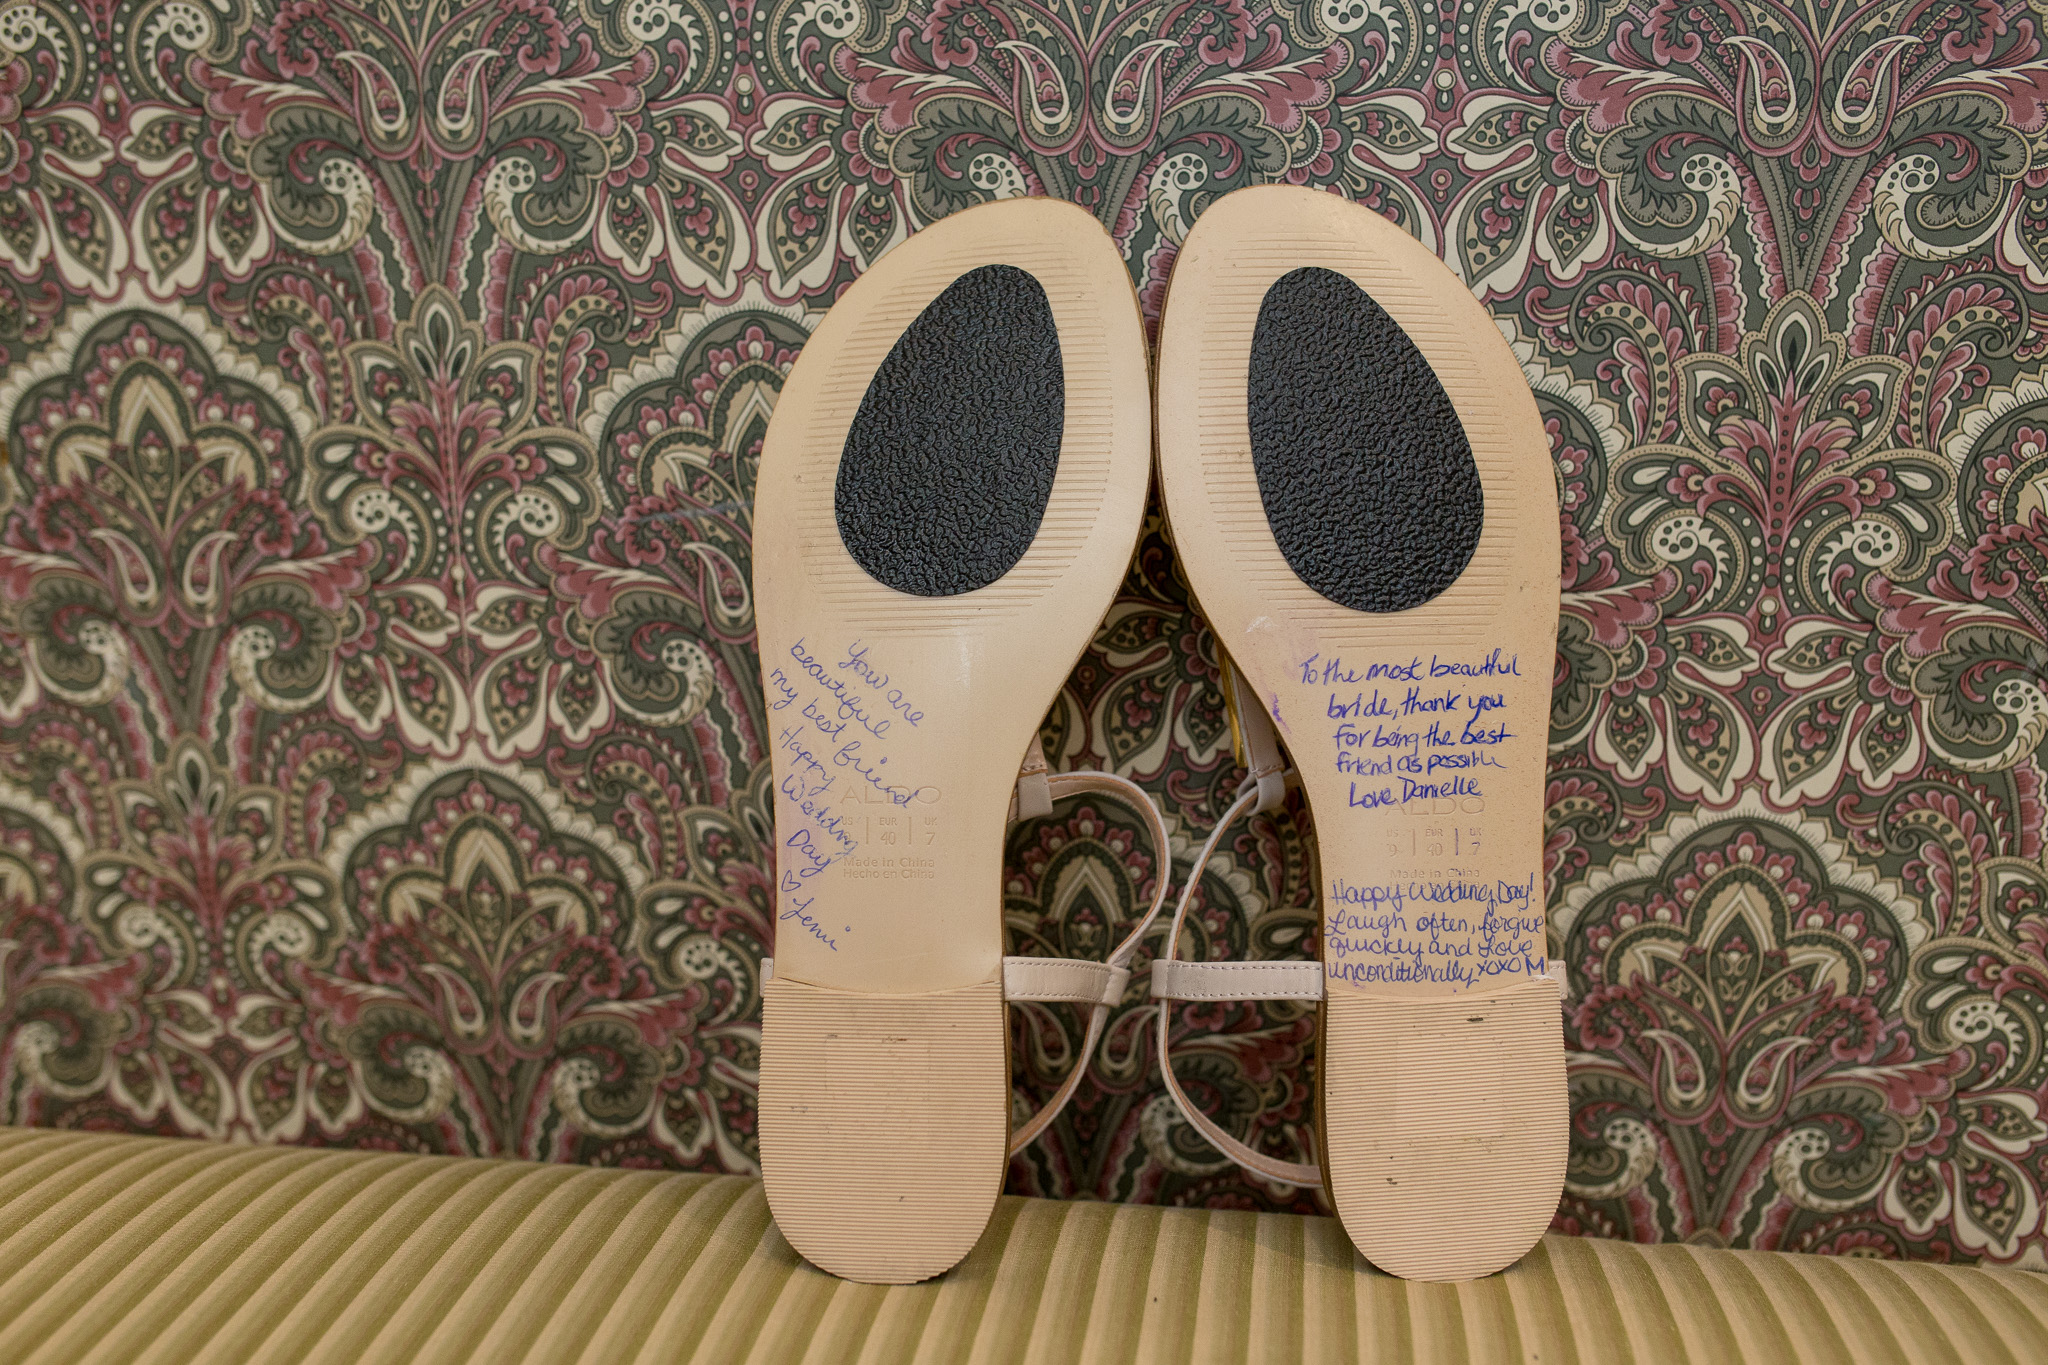 You are
beautiful
my best friend
Happy
Wedding
Day
♡ Jenni
ALDO
US EUR UK
9 40 7
Made in China
Hecho en China
To the most beautiful
bride, thank you
for being the best
friend as possible
Love Danielle
ALDO
US EUR UK
9 40 7
Made in China
Happy Wedding Day!
Laugh often, forgive
quickly and Love
unconditionally xoxo M